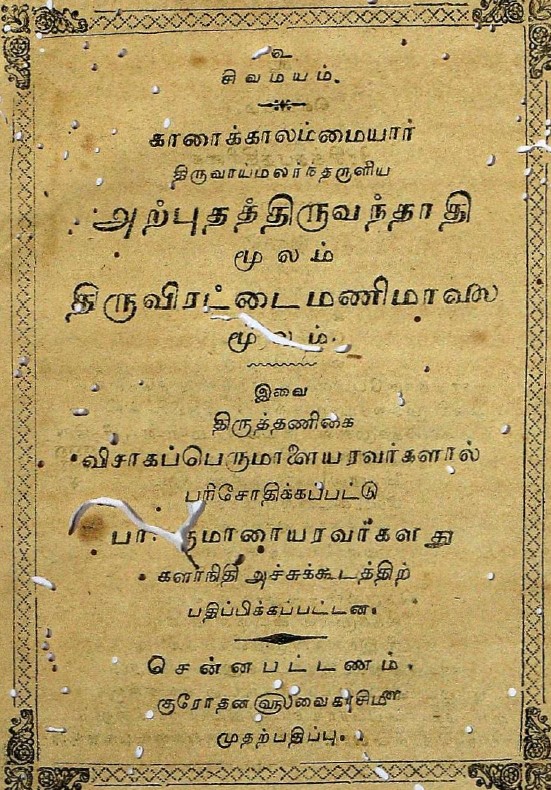 உ
சிவமயம்.
காரைக்காலம்மையார்
திருவாய்மலர்ந்தருளிய
அற்புதத்திருவந்தாதி
மூலம்
திருவிரட்டைமணிமாலை
மூலம்.
இவை
திருத்தணிகை
விசாகப்பெருமாளையரவர்களால்
பரிசோதிக்கப்பட்டு
அச்சுக்கூடத்திற்
பதிப்பிக்கப்பட்டன.
சென்னபட்டணம்.
குரோதன௵வைகாசி௴
முதற்பதிப்பு.